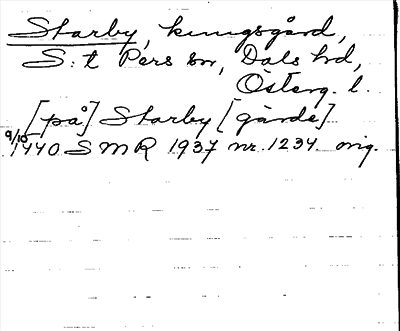 Starby, kungsgård,
S:t Pers sn, Dals hd,
Österg. l.
[på] Starby [gårde]
9/10 1440 SMR 1937 nr. 1234. orig.